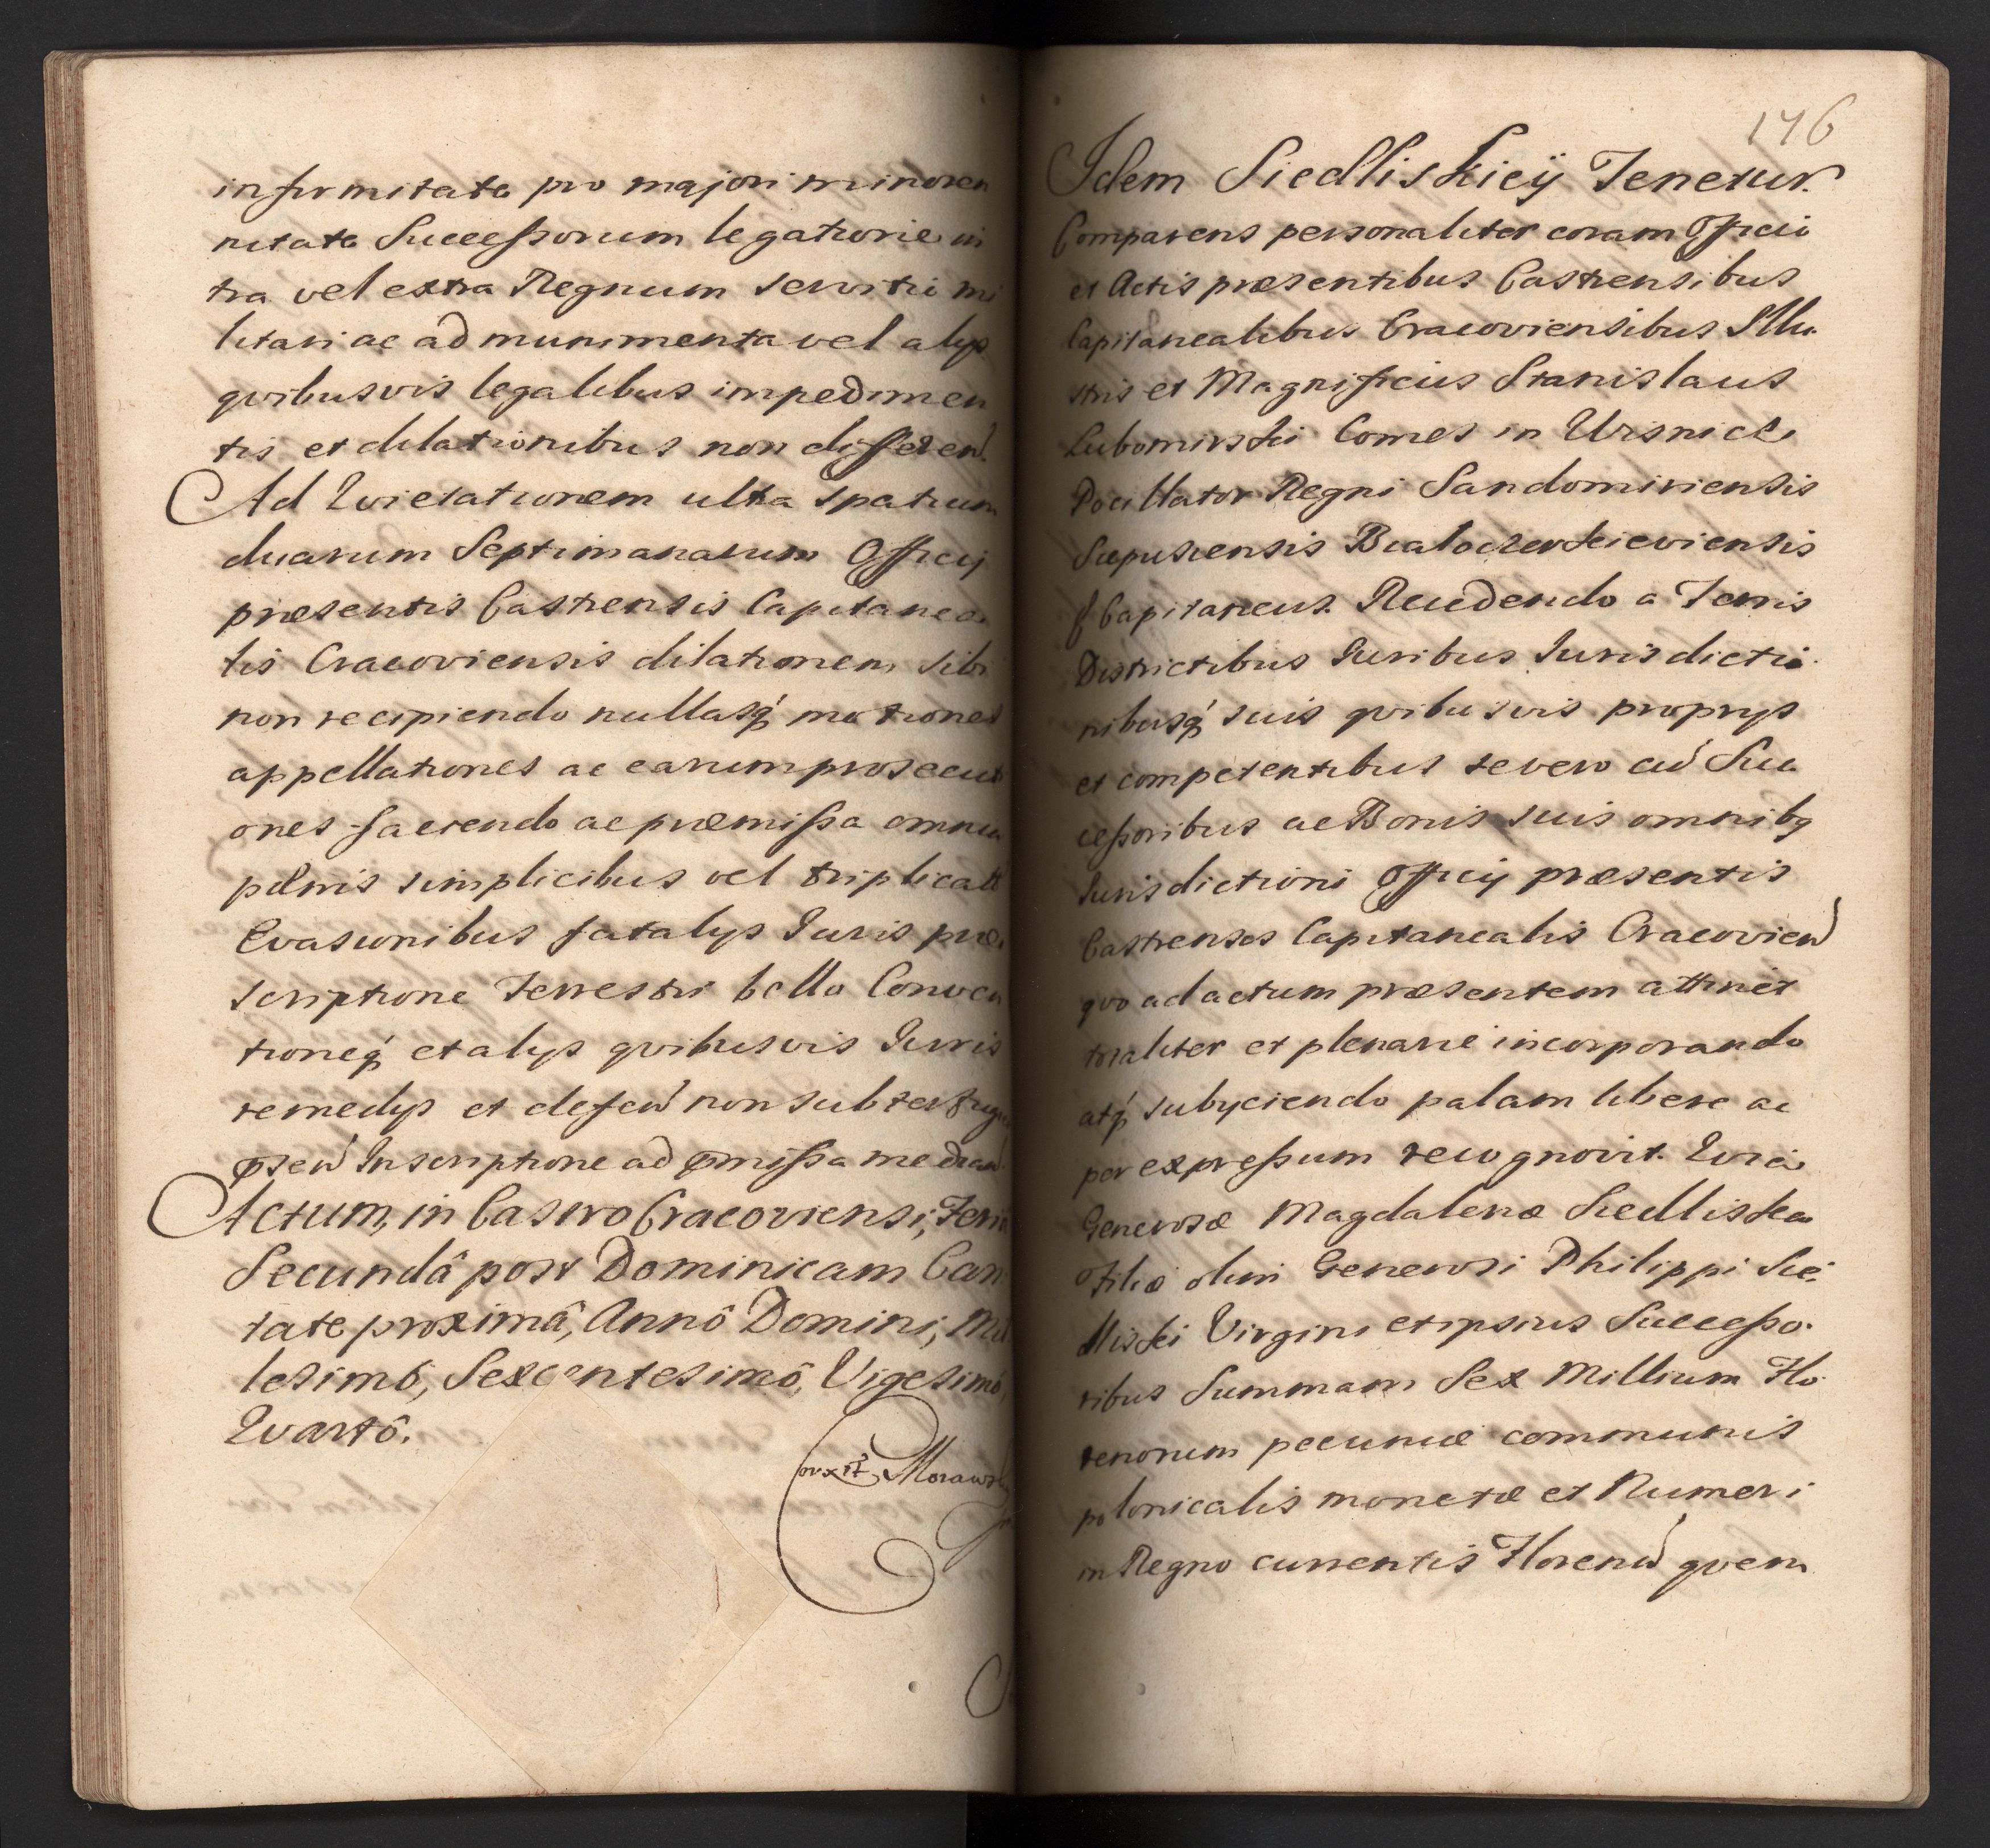 infirmitate pro majori minoren
nitate Successorum legatione in
tra vel extra Regnum servitii mi
litari ac ad munimenta vel alys
qvibusvis legalibus impedimen
tis et dilationibus non differen.
Ad Qvietationem ultra spatium
duarum Septimanarum Officij
præsentis Castrensis Capitanea
lis Cracoviensis dilationem sibi
non recipiendo nullasq motiones
appellationes ac earum prosecuti
ones faciendo ac præmissa omnia
pænis simplicibus vel triplicatis
Evasionibus fatalys Juris præ
scriptione Terrestri bello Conven
tioneq et alys qvibusvis Juris
remedys et defen non subterfug
Inscriptione ad pmissa median
Actum, in Castro Cracoviensi, Feria
Secundâ post Dominicam Can
tate proximâ, Annô Domini, Mil
lesimô, Sexcentesimô, Vigesimô,
Qvartô.
Morawsk
176
Idem Siedliskieÿ Tenetur.
Comparens personaliter coram Officio
et Actis præsentibus Castrensibus
Capitanealibus Cracoviensibus Illu
stris et Magnificus Stanislaus
Lubomirski Comes in Wisnicz
Pocillator Regni Sandomiriensis
Scepusiensis Bialocerkieviensis
Capitaneus. Recedendo a Terris
Districtibus Juribus Jurisdictio
nibusq suis qvibusvis proprys
et competentibus se vero cu Suc
cessoribus ac Bonis suis omnibq
Jurisdictioni Officij præsentis
Castrenses Capitanealis Cracovien
qvo ad actum præsentem attinet
totaliter et plenarie incorporando
atq subyciendo palam libere ac
per expressum recognovit. Qvia
Generosæ Magdalenæ Siedliska
Filiæ olim Generosi Philippi Sie
dliski Virgini et ipsius Successo
ribus Summam Sex Millium Flo
renorum pecuniæ communis
polonicalis monetæ et Numeri
in Regno currentis Floren qvem